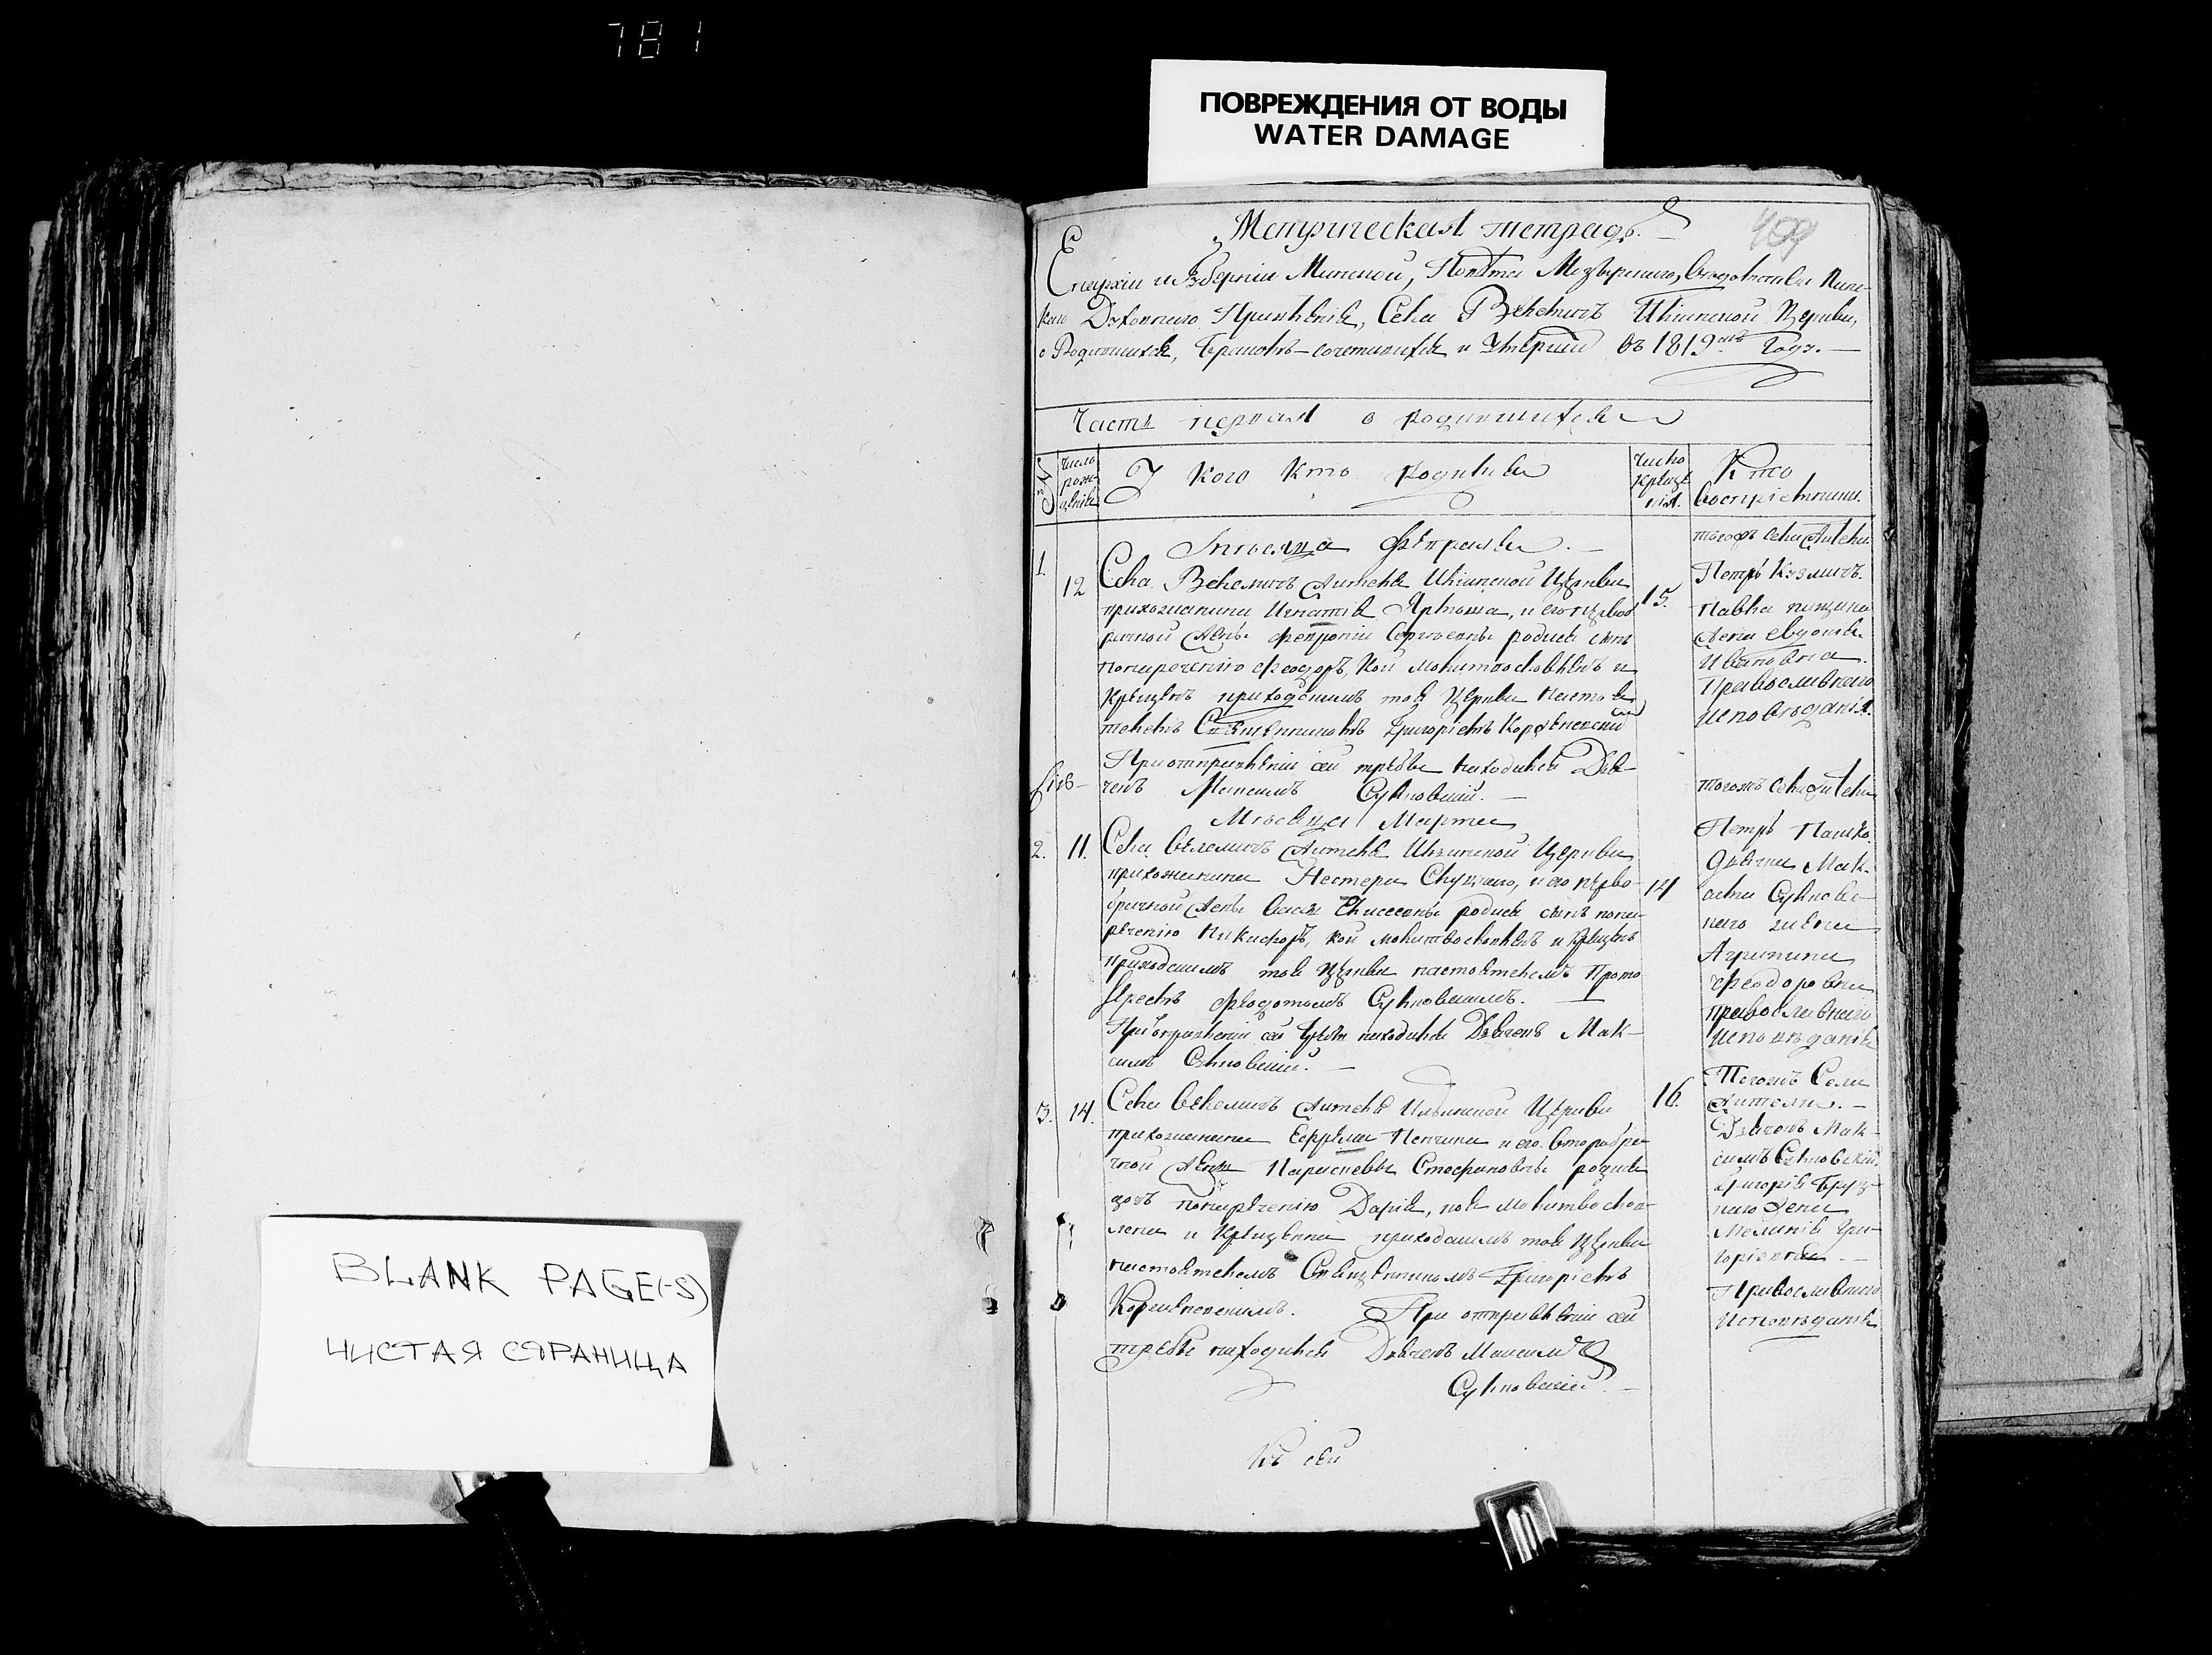 781
ПОВРЕЖДЕНИЯ ОТ ВОДЫ
WATER DAMAGE
409
Метрическая тетрадь.
Епархіи и Губерніи Минской, Повѣта Мозырскаго, Вѣдомства Пинс-
каго Духовнаго Правленія, Села Велемичъ Ильинской Церкви,
о Родившихся, Бракомъ-сочетавшихся и Умершихъ въ 1819мъ Годѣ.
Часть первая о родившихся
№
Число рож-денія
У кого кто родился
Число креще-нія.
Кто Воспріемники.
Мѣсяца Февраля.
1.
12
Села Велемичъ Жителя Ильинской Церкви
прихожанина Игнатія и его первоб
рачной Жены Февроніи Сергѣевны родися сынъ
понареченію Феодоръ, кой молитвословленъ и
Крещенъ приходскимъ тоя Церкви Настоя
телемъ Священникомъ Григоріемъ
При отправленіи сей требы находился Дья-
чекъ Максимъ Сулковскій.
15.
тогожъ села Жители
Петръ
Павла
Жена Евдокія
Ивановна.
Православнаго
исповѣданія.
Мѣсяца Марта
2.
11.
Села Велемичъ Жителя Ильинской Церкви
прихожанина Нестера и его перво-
брачной Жены родися сынъ пона-
реченію Никифоръ, кой молитвословленъ и Крещенъ
приходскимъ тоя Церкви настоятелемъ Прото
Іереемъ Федотомъ Сулковскимъ.
При отправленіи сей требы находился Дьячекъ Мак-
симъ Сулковскій.
14
тогожъ села Жители
Петръ
Дьячка Мак-
сима Сулковс-
каго жена
Агрипина
Феодоровна
православнаго
исповѣданія
3.
14.
Села Велемичъ Жителя Ильинской Церкви
прихожанина Ефрема и его второбра-
чной Жены Параскевы Стефановны родися
дочь понареченію Дарія, коя молитвослов-
лена и Крещенна приходскимъ тоя Церкви
настоятелемъ Священникомъ Григоріемъ
При отправленіи сей
требы находился Дьячекъ Максимъ
Сулковскій.
16.
Тогожъ Села
Жители.
Дьячекъ Мак-
симъ Сулковскій,
Григорія
Жена
Меланія Гри-
горіевна
Православнаго
Исповѣданія
Къ сей
BLANK PAGE(-S)
ЧИСТАЯ СТРАНИЦА